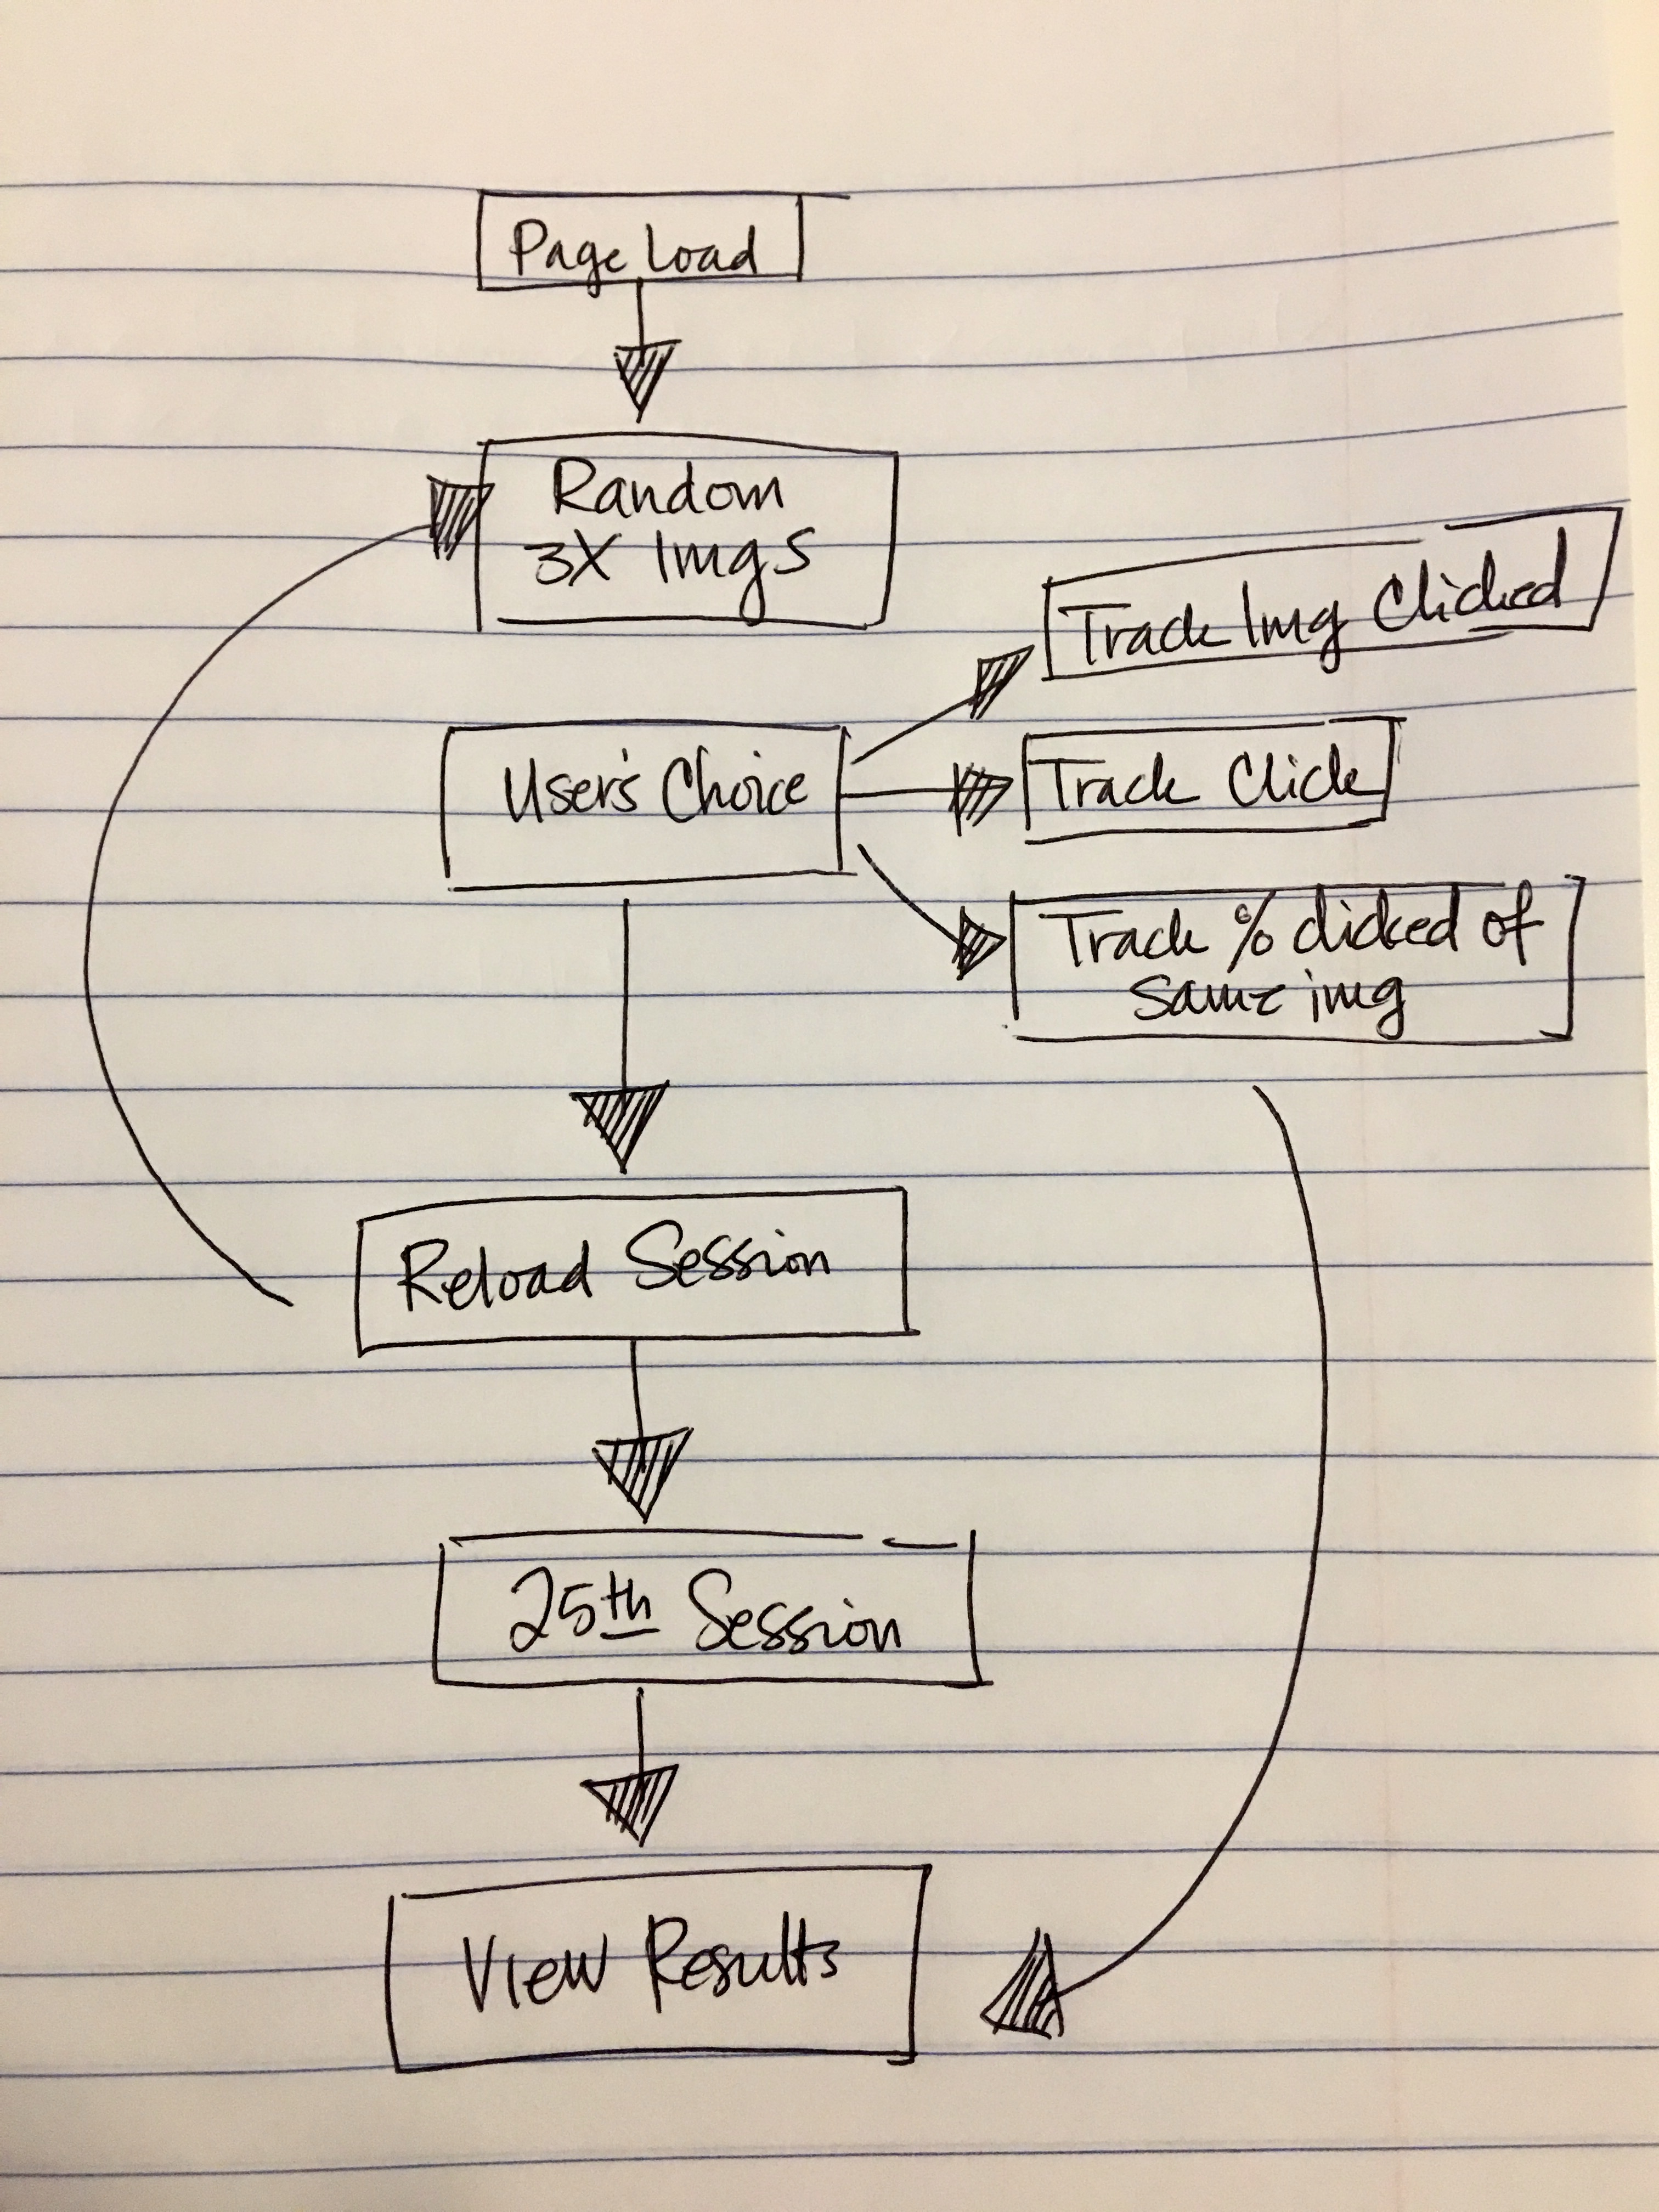 Page Load
Random
3X Imgs
Track Img Clicked
User's Choice
Track Click
Track % clicked of
same img
Reload Session
25th Session
View Results